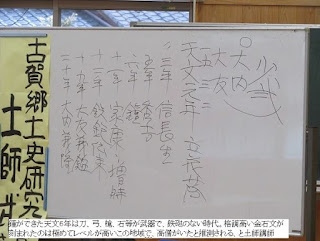 少弐
大内
大友
天文元年
三年 信長生
五年 秀吉
六年 鐘
十一年 家康
十二年 鉄砲伝来
十九年 大友義鑑
二十年 大内義隆
古賀郷土史研究
土師
鐘ができた天文6年は刀、弓、槍、石等が武器で、鉄砲のない時代。格調高い金石文が
刻まれたのは極めてレベルが高いこの地域で、高僧がいたと推測される、と土師講師